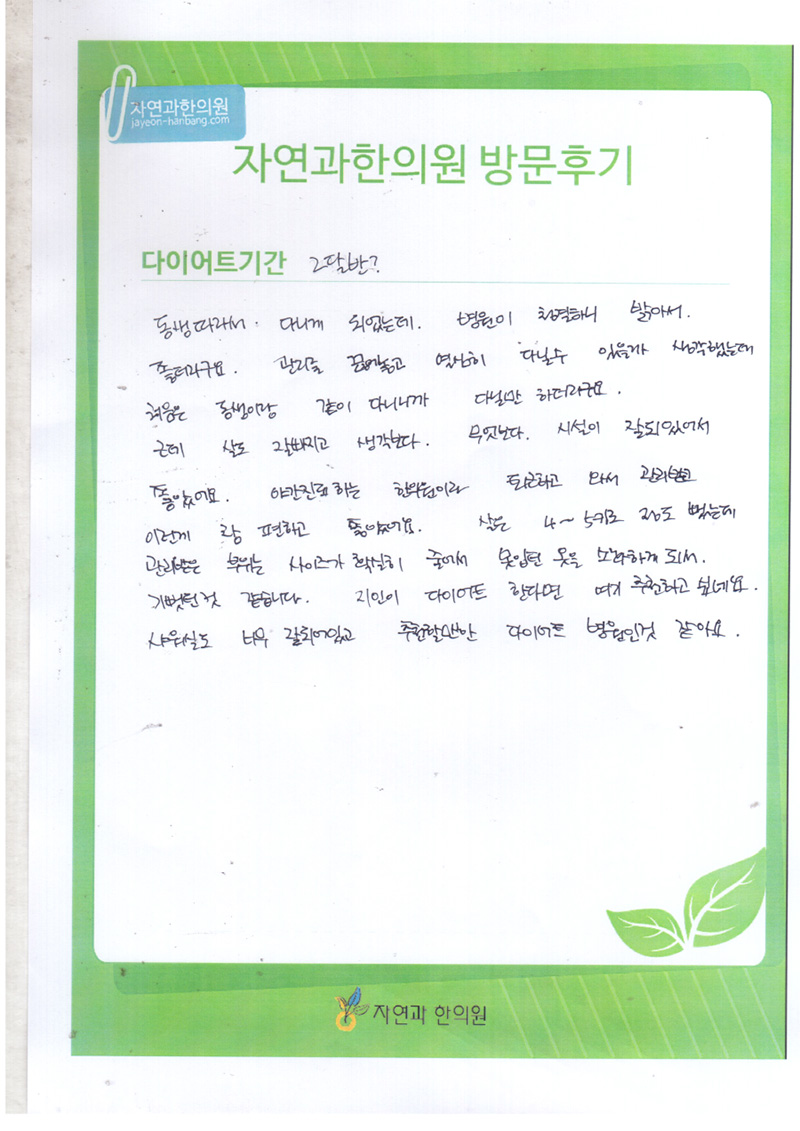 자연과한의원
jayeon-hanbang.com
자연과한의원 방문후기
다이어트기간 2달반?
동생따라서. 다니게 되었는데. 병원이 청결하니 밝아서.
쫗더라구요. 관리를 끊어놓고 열심히 다닐수 있을까 생각했는데
처음은 동생이랑 같이 다니니까 다닐만 하더라구요.
근데 살도 잘빠지고 생각보다. 무엇보다. 시설이 잘되있어서
쫗았어요. 야간진료하는 한의원이라 퇴근하고 와서 관리받고
이런게 참 편하고 좋았어요. 살은 4~5키로 정도 뺐는데
관리받은 부위는 사이즈가 확실히 줄어서 못입던 옷을 소화하게 되서.
기뻤던것 같습니다. 지인이 다이어트 한다면 여기 추천하고 싶네요.
샤워실도 너무 잘되어있고 추천할만한 다이어트 병원인것 같아요.
자연과 한의원